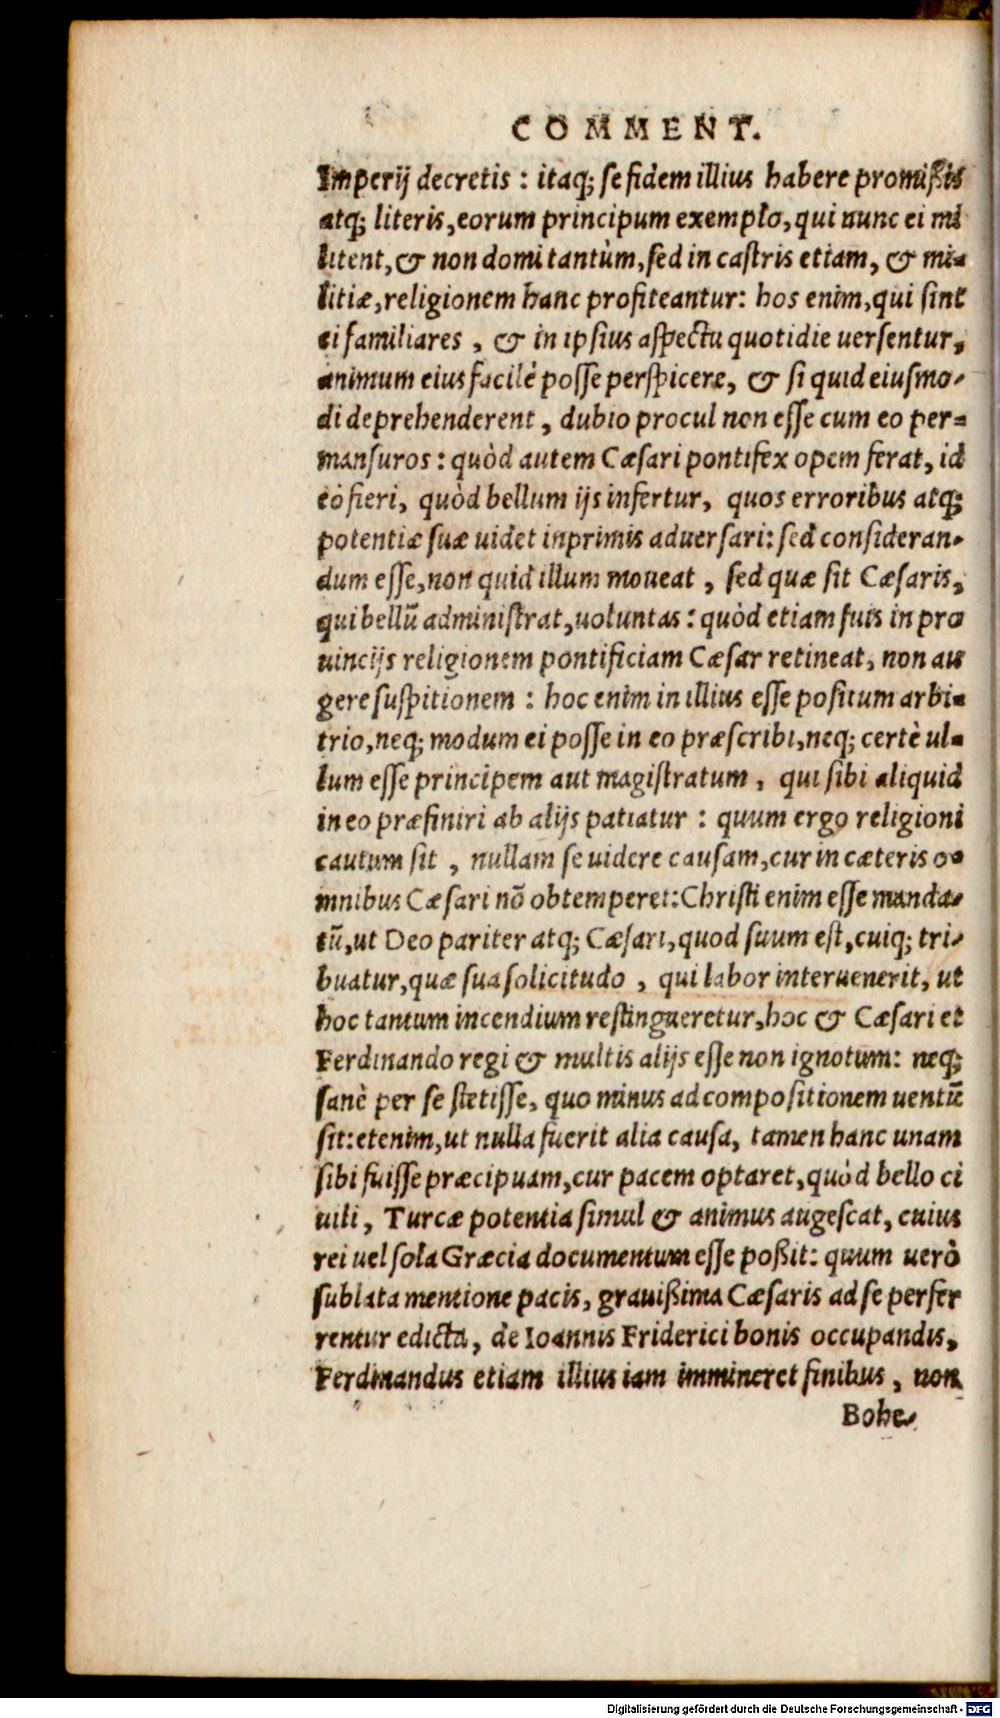 COMMENT.
Imperij decretis : itaq; se fidem illius habere promißis
atq; literis, eorum principum exemplo, qui nunc ei mi
litent, & non domi tantùm, sed in castris etiam, & mi-
litiæ, religionem hanc profiteantur: hos enim, qui sint
ei familiares , & in ipsius aspectu quotidie uersentur,
animum eius facilè posse perspicere, & si quid eiusmo-
di deprehenderent , dubio procul non esse cum eo per-
mansuros : quòd autem Cæsari pontifex opem ferat, id
eò fieri, quòd bellum ijs infertur, quos erroribus atq;
potentiæ suæ uidet inprimis aduersari: sed consideran-
dum esse, non quid illum moueat , sed quæ sit Cæsaris,
qui bellū administrat, uoluntas : quòd etiam suis in pro
uincijs religionem pontificiam Cæsar retineat, non au
gere suspitionem : hoc enim in illius esse positum arbi-
trio, neq; modum ei posse in eo præscribi, neq; certè ul-
lum esse principem aut magistratum , qui sibi aliquid
in eo præfiniri ab alijs patiatur : quum ergo religioni
cautum sit , nullam se uidere causam, cur in cæteris o-
mnibus Cæsari nõ obtemperet: Christi enim esse manda-
tũ, ut Deo pariter atq; Cæsari, quod suum est, cuiq; tri-
buatur, quæ sua solicitudo , qui labor interuenerit, ut
hoc tantum incendium restingueretur, hoc & Cæsari et
Ferdinando regi & multis alijs esse non ignotum: neq;
sanè per se stetisse, quo minus ad compositionem uentũ
sit: etenim, ut nulla fuerit alia causa, tamen hanc unam
sibi fuisse præcipuam, cur pacem optaret, quòd bello ci
uili, Turcæ potentia simul & animus augescat, cuius
rei uel sola Græcia documentum esse poßit: quum uerò
sublata mentione pacis, grauißima Cæsaris ad se perfer
rentur edicta, de Ioannis Friderici bonis occupandis,
Ferdinandus etiam illius iam immineret finibus , non
Bohe-
Digitalisierung gefördert durch die Deutsche Forschungsgemeinschaft - DFG